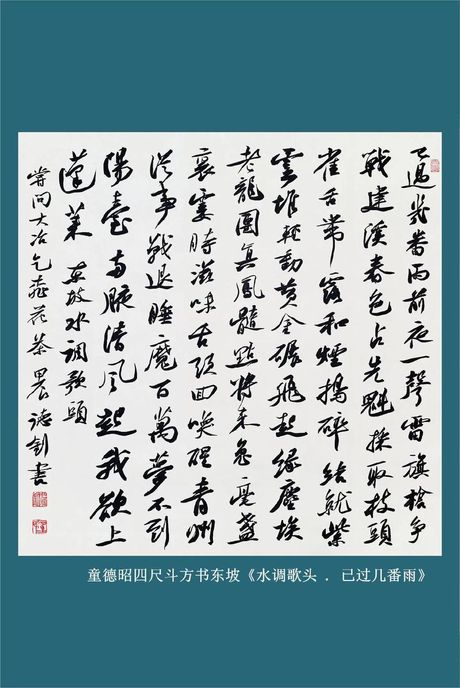 已過幾番雨前夜一聲雷旗槍争
戰建溪春色占先魁採取枝頭
雀舌帶露和煙搗碎結就紫
雲堆輕動黄金碾飛起緑塵埃
老龍團真鳳髓點将来兔毫盞
裏霎時滋味舌頭回唤醒青州
從事戰退睡魔百萬夢不到
陽臺两腋清風起我欲上
蓬莱 東坡水調歌頭
嘗问大冶乞桃花茶 書
童德昭四尺斗方书东坡《水调歌头 . 已过几番雨》